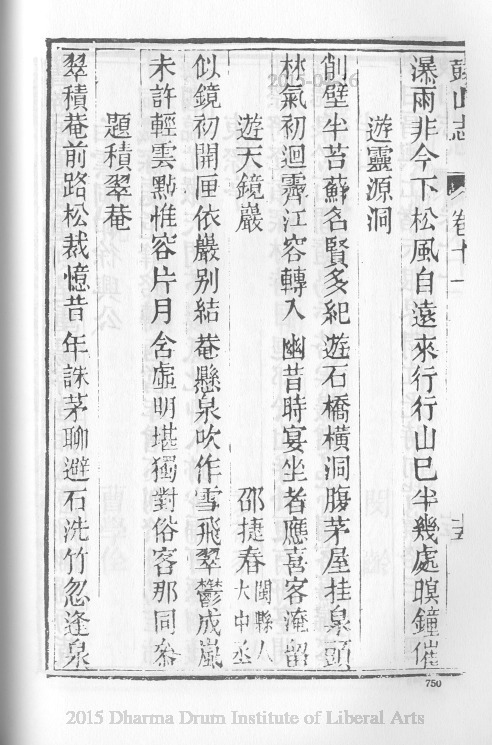 鼓山志 卷十一 十五
瀑雨非今下松風自遠來行行山已半幾處暝鐘催
遊靈源洞
削壁半苔蘚名賢多紀遊石橋橫洞腹茅屋挂泉頭
林氣初迴霽江容轉入幽昔時宴坐者應喜客淹留
遊天鏡巖 邵捷春 閩縣人大中丞
似鏡初開匣依巖別結菴懸泉吹作雪飛翠鬱成嵐
未許輕雲點惟容片月含虛明堪獨對俗容那同叅
題積翠菴
翠積菴前路松裁憶昔年誅茅聊避石洗竹忽逢泉
750
2015 Dharma Drum Institute of Liberal Arts